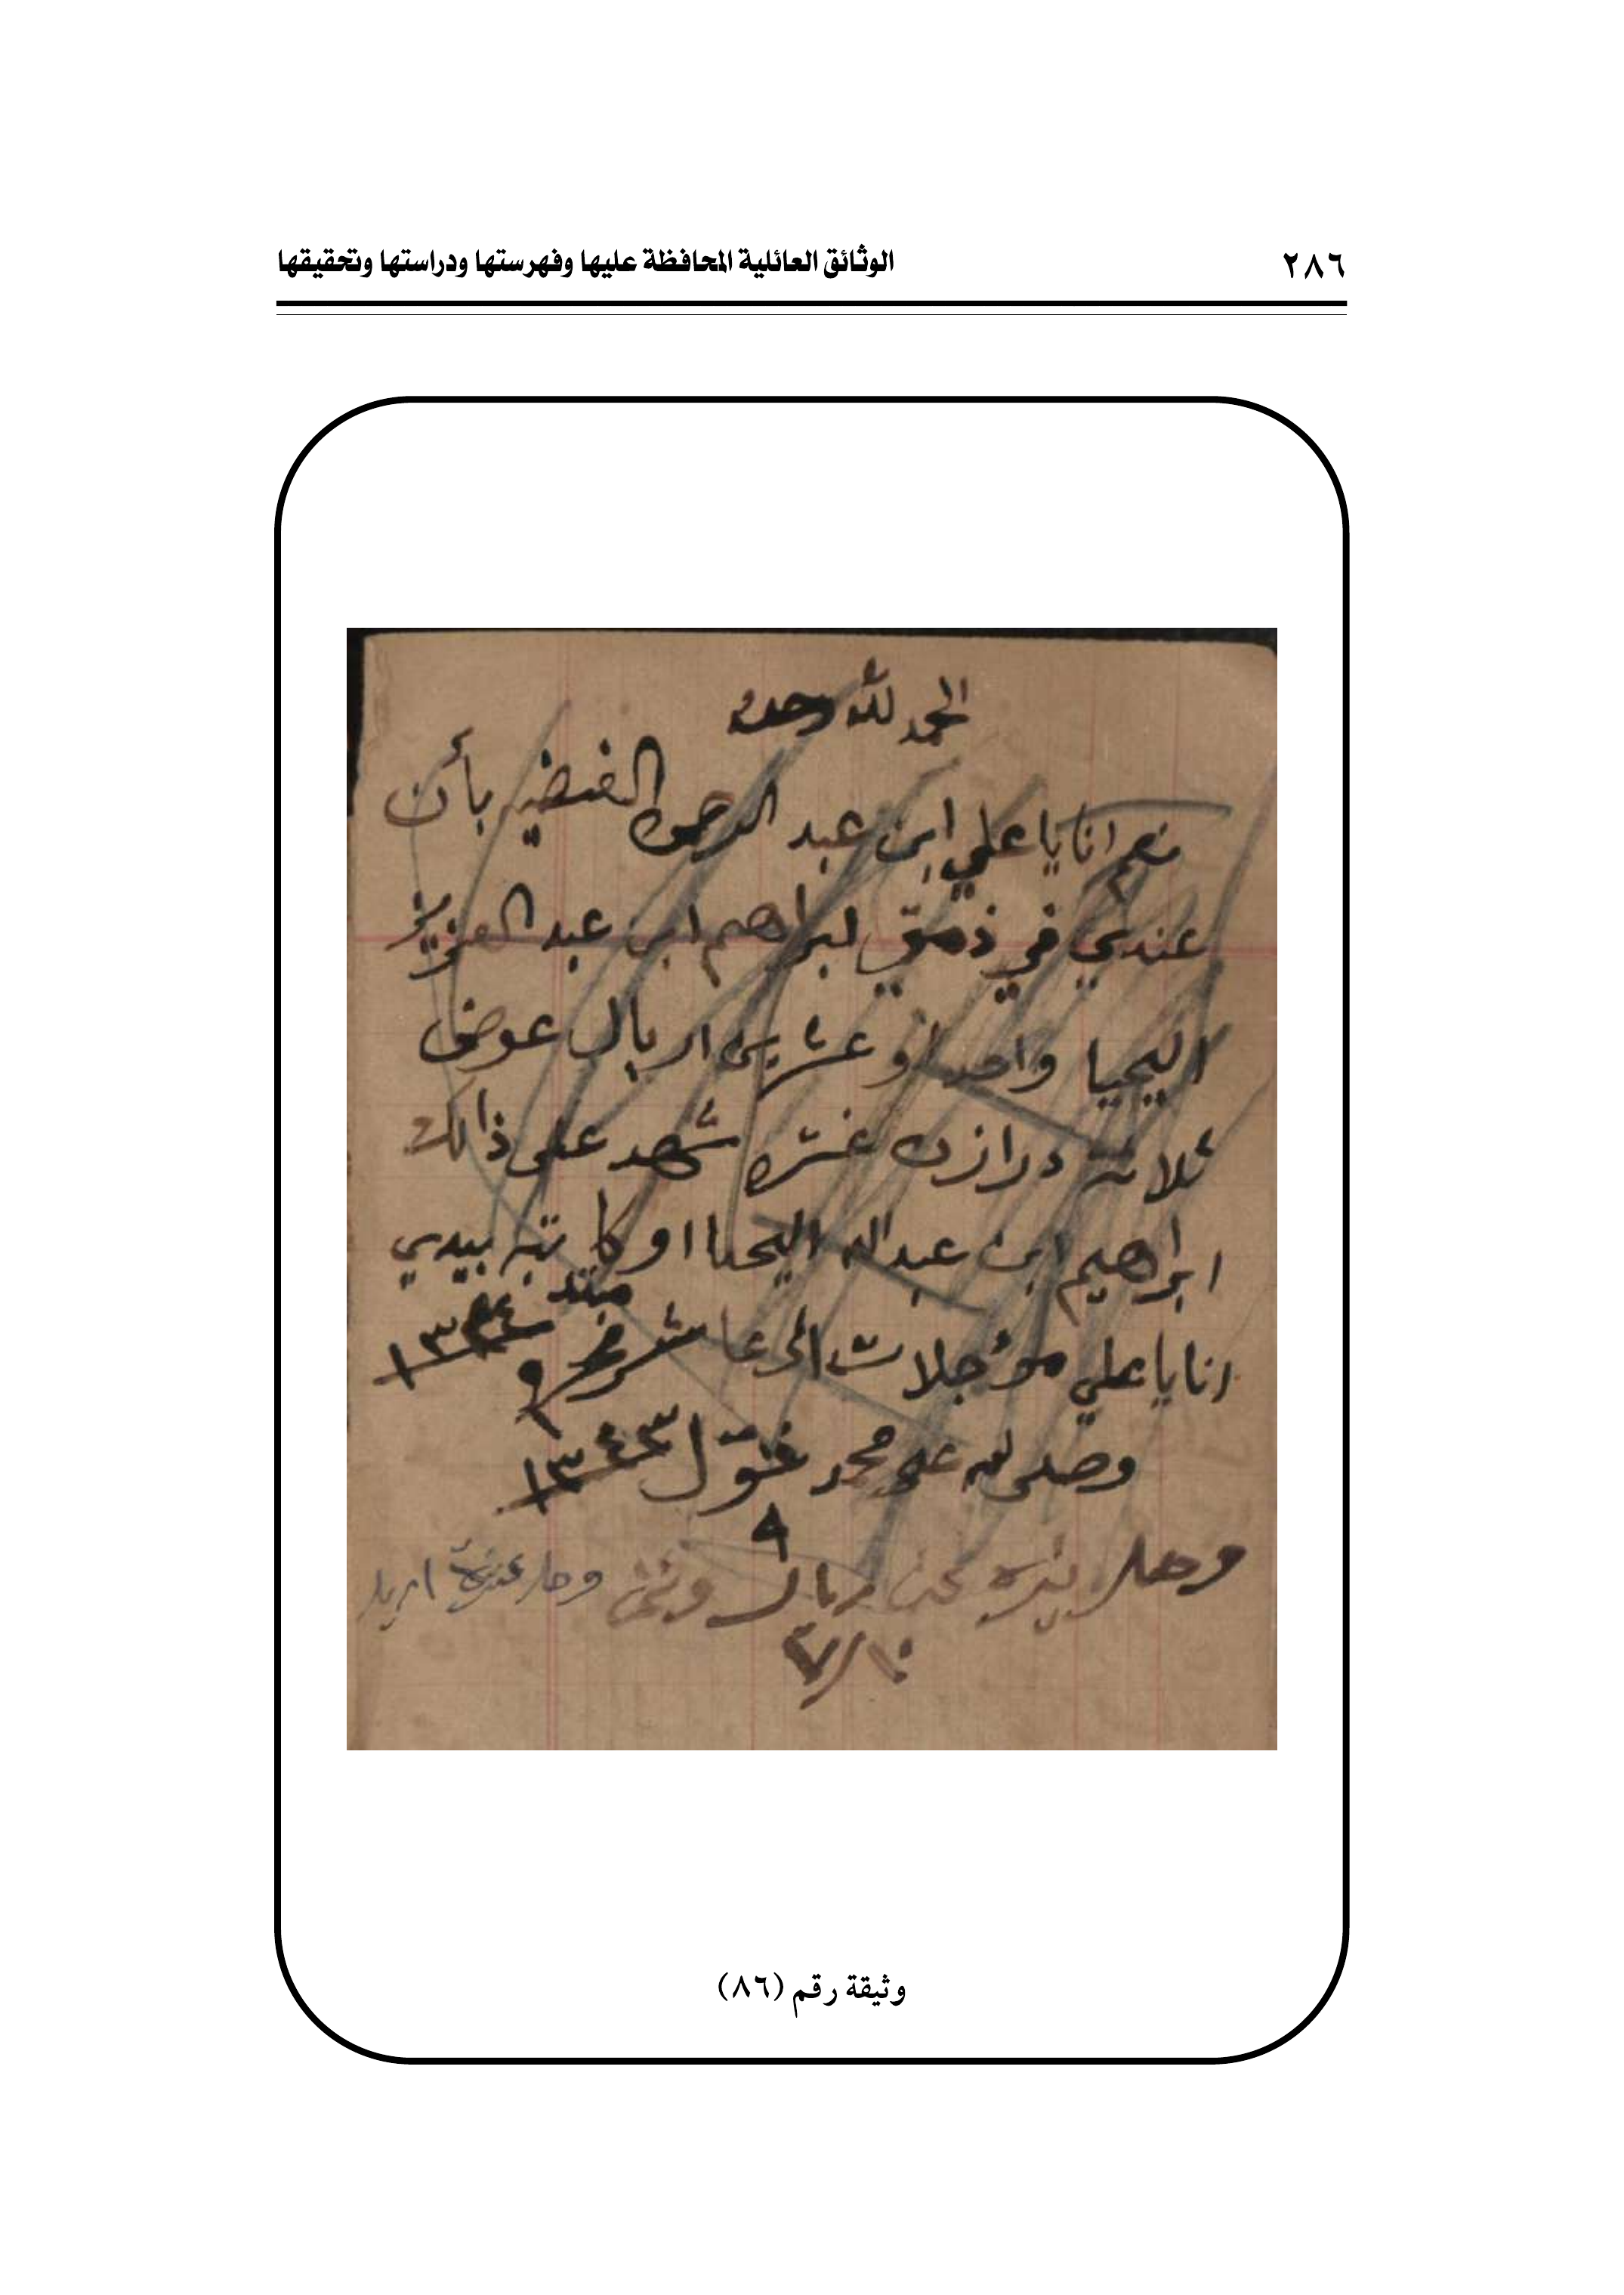 ٢٨٦
الوثائق العائلية المحافظة عليها وفهرستها ودراستها وتحقيقها
الحمد لله وحده
نعم انايا علي ابن عبد الرحمن الغضيه بأن
عندي في ذمتي لبراهيم ابن عبد العزيز
اليحيا واحد او عشرين اريال عوض
ثلاثة درازن غتره شهد على ذالك
ابراهيم ابن عبدالله اليحيا او كاتبه بيدي
انايا علي مؤجلات الى عاشر
١٣٤٤
وصلى لله على محمد
١٣٤٣
٩
ريال
اريل
وثيقة رقم (٨٦)